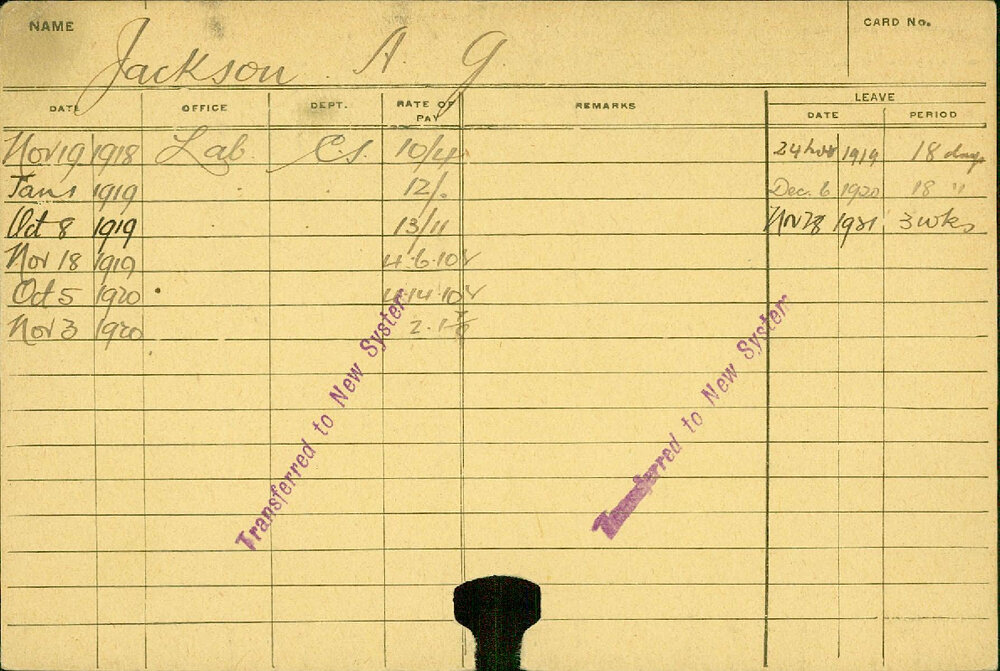 NAME Jackson A. G. CARD No.
DATE OFFICE DEPT. RATE OF PAY REMARKS LEAVE
DATE PERIOD
Nov 19 1918 Lab. C.S. 10/4 24 Nov 1919 18 days
Jan 1 1919 12/. Dec. 6 1920 18 "
Oct 8 1919 13/11 Nov 28 1921 3 wks
Nov 18 1919 4.6.10
Oct 5 1920 4.14.10
Nov 3 1920 2.1
Transferred to New System
Transferred to New System